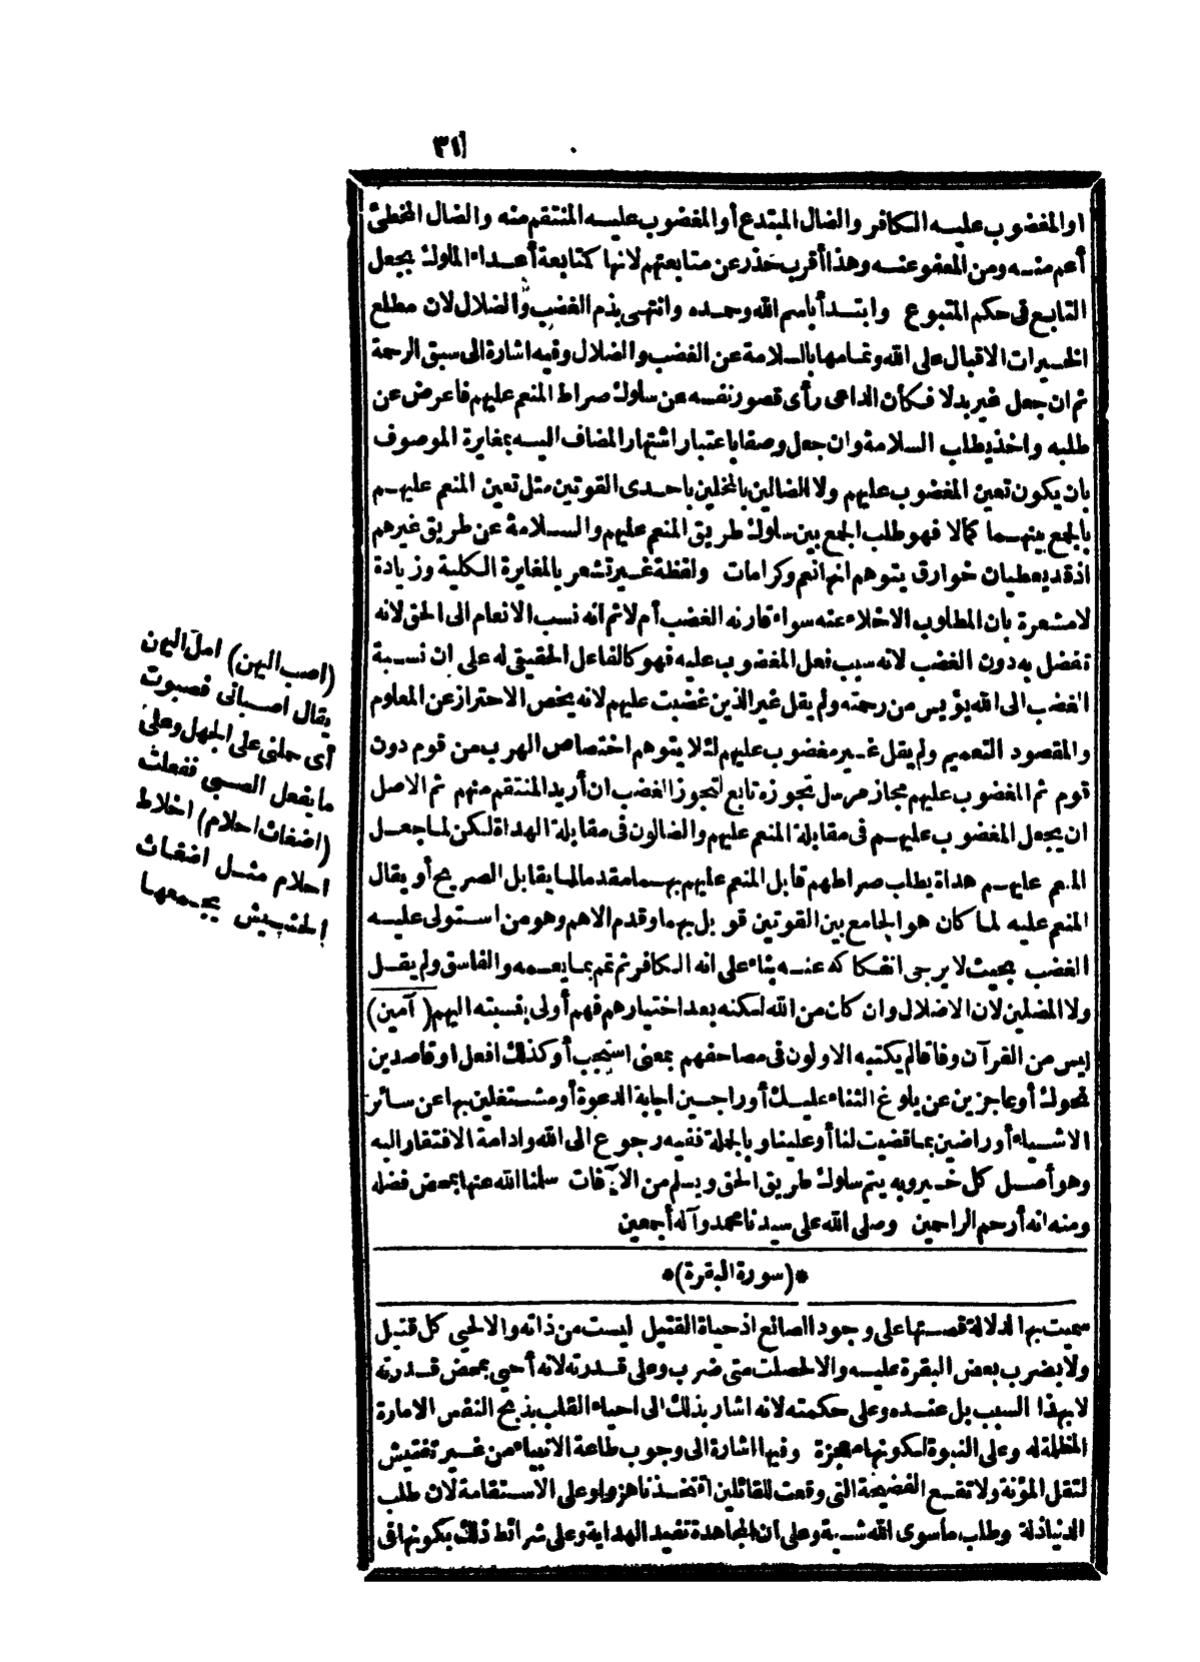 ٣١
او المغضوب عليه الكافر والضال المبتدع أو المغضوب عليه المنتقم منه والضال المخطئ
أعم منه ومن المعفو عنه وهذا أقرب حذر عن متابعتهم لانها كمتابعة أعداء الملوك يجعل
التابع في حكم المتبوع وابتدأ باسم الله وحمده وانتهى بذم الغضب والضلال لان مطلع
الخيرات الاقبال على الله وتمامها بالسلامة عن الغضب والضلال وفيه اشارة الى سبق الرحمة
ثم ان جعل غير بدلا فكأن الداعى رأى قصور نفسه عن سلوك صراط المنعم عليهم فاعرض عن
طلبه واخذ يطلب السلامة وان جعل وصفا باعتبار اشتهار المضاف اليه بمغايرة الموصوف
بان يكون تعين المغضوب عليهم ولا الضالين بالمخلين باحدى القوتين مثل تعين المنعم عليهم
بالجمع بينهما كمالا فهو طلب الجمع بين سلوك طريق المنعم عليهم والسلامة عن طريق غيرهم
اذ قد يعطيان خوارق يتوهم انها نعم وكرامات ولفظة غير تشعر بالمغايرة الكلية وزيادة
لا مشعرة بان المطلوب الاخلاء عنه سواء قارنه الغضب أم لا ثم انه نسب الانعام الى الحق لانه
تفضل به دون الغضب لانه سبب فعل المغضوب عليه فهو كالفاعل الحقيقي له على ان نسبة
الغضب الى الله يؤيس من رحمته ولم يقل غير الذين غضبت عليهم لانه يخص الاحتراز عن المعلوم
والمقصود التعميم ولم يقل غير مغضوب عليهم لئلا يتوهم اختصاص الهرب من قوم دون
قوم ثم المغضوب عليهم مجاز مرسل تجوزه تابع لتجوز الغضب ان أريد المنتقم منهم ثم الاصل
ان يجعل المغضوب عليهم في مقابلة المنعم عليهم والضالون في مقابلة الهداة لكن لما جعل
المنعم عليهم هداة يطلب صراطهم قابل المنعم عليهم بهما مقدما لما يقابل الصريح أو يقال
المنعم عليه لما كان هو الجامع بين القوتين قوبل بهما وقدم الاهم وهو من استولى عليه
الغضب بحيث لا يرجى انفكاكه عنه بناء على انه الكافر ثم تمم بما يعمه والفاسق ولم يقل
ولا المضلين لان الاضلال وان كان من الله لكنه بعد اختيارهم فهم أولى بنسبته اليهم (آمين)
ليس من القرآن وفاقا لم يكتبه الاولون في مصاحفهم بمعنى استجب أو كذلك افعل او قاصدين
نحوك أو عاجزين عن بلوغ الثناء عليك أو راجين اجابة الدعوة أو مشتغلين بها عن سائر
الاشياء أو راضين بما قضيت لنا أو علينا وبالجملة ففيه رجوع الى الله وادامة الافتقار اليه
وهو أصل كل خير وبه يتم سلوك طريق الحق ويسلم من الآفات سلمنا الله عنها بمحض فضله
ومنه انه أرحم الراحمين وصلى الله على سيدنا محمد وآله أجمعين
*(سورة البقرة)*
سميت بها لدلالة قصتها على وجود الصانع اذ حياة القتيل ليست من ذاته والالحيى كل قتيل
ولا بضرب بعض البقرة عليه والالحصلت متى ضرب وعلى قدرته لانه أحيى بمحض قدرته
لا بهذا السبب بل عنده وعلى حكمته لانه اشار بذلك الى احياء القلب بذبح النفس الامارة
المظلمة له وعلى النبوة لكونها معجزة وفيها اشارة الى وجوب طاعة الانبياء من غير تفتيش
لتقل المؤنة ولا تقع الفضيحة التى وقعت للقائلين أتتخذنا هزوا وعلى الاستقامة لان طلب
الدنيا ذلة وطلب ما سوى الله شية وعلى ان المجاهدة تفيد الهداية وعلى شرائط ذلك بكونها فى
(اصب اليهن) امل اليهن
يقال اصبانى فصبوت
أى حملنى على الجهل وعلى
ما يفعل الصبى ففعلت
(اضغاث احلام) اخلاط
احلام مثل اضغاث
الحشيش يجمعها